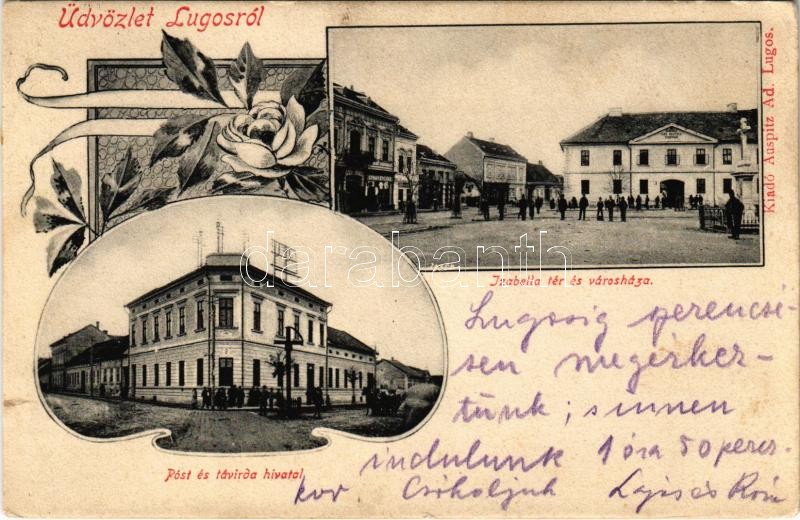 Üdvözlet Lugosról
Kiadó Auspitz Ad. Lugos.
Izabella tér és városháza.
darabanth
Póst és távirda hivatal.
Lugosig perencsé-
sen megérkez-
tünk; s innen
indulunk 1 óra 50 perc-
kor Csókoljuk Lajos és Rózi